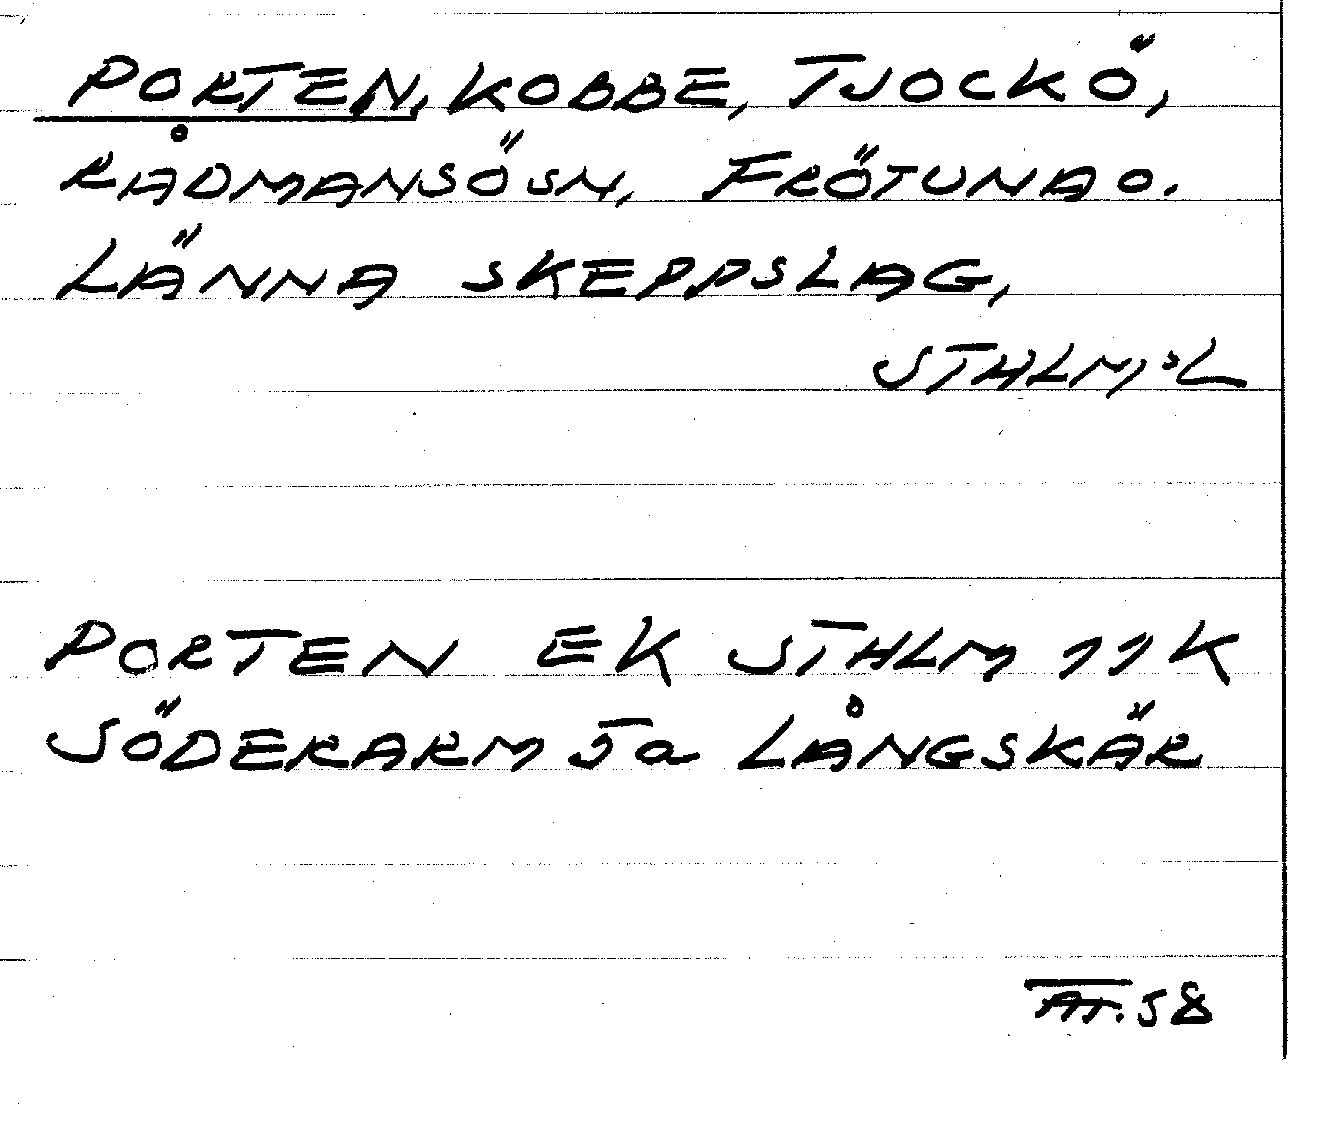 PORTEN, KOBBE, TJOCKÖ,
RÅDMANSÖ SN, FRÖTUNA O.
LÄNNA SKEPPSLAG,
STHLM:L
PORTEN EK STHLM 11 K
SÖDERARM 5a LÅNGSKÄR
58